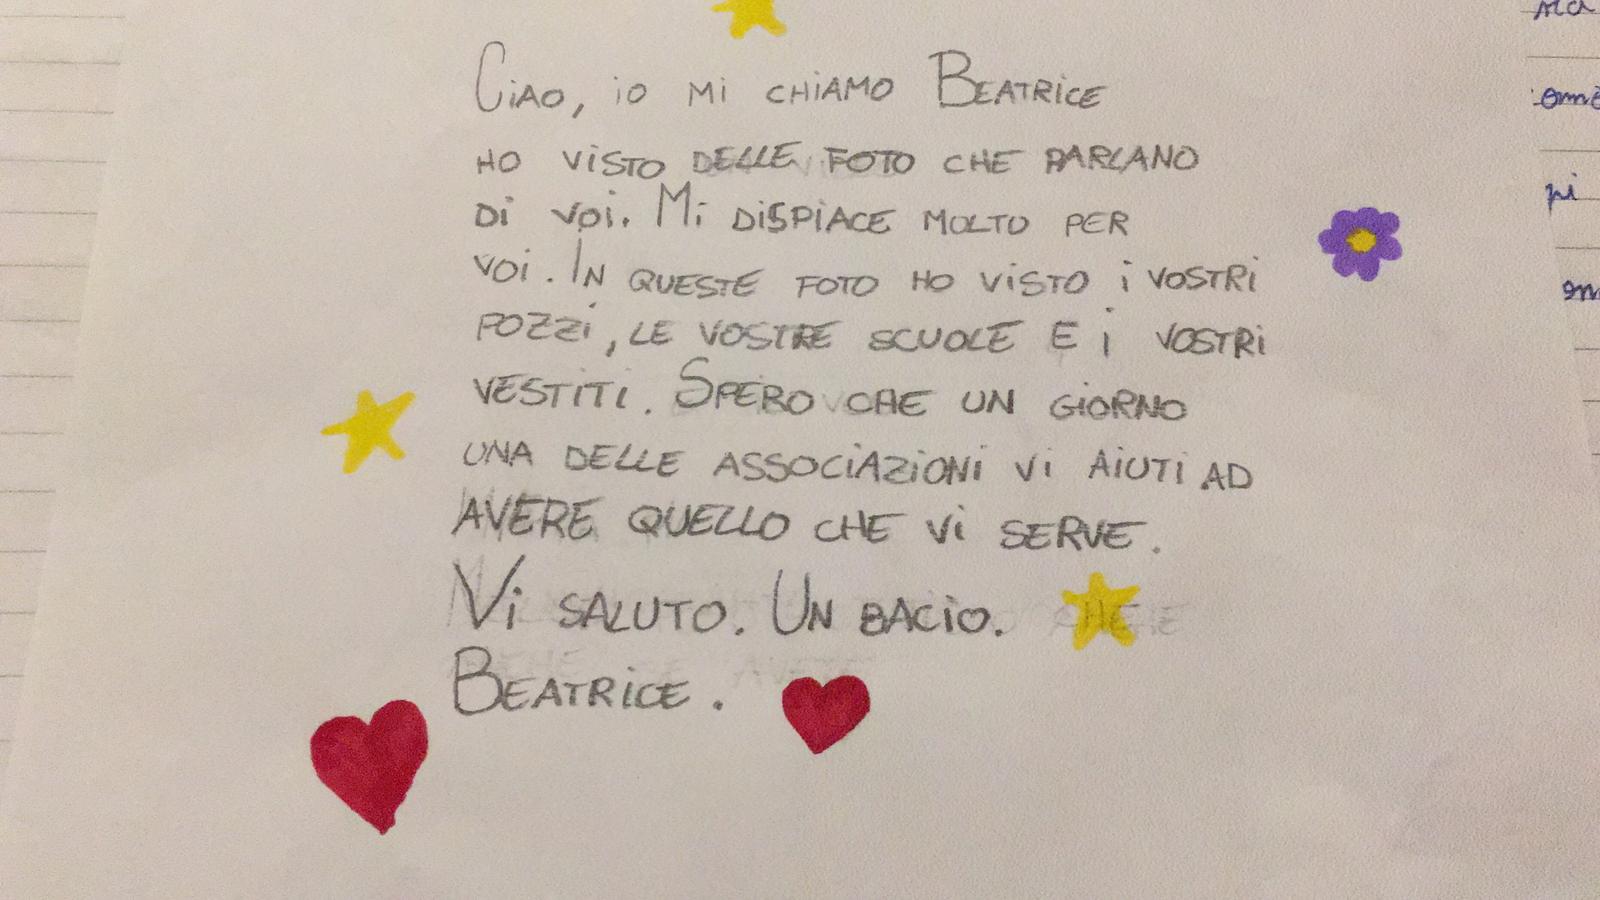 Ciao, io mi chiamo Beatrice
ho visto delle foto che parlano
di voi. Mi dispiace molto per
voi. In queste foto ho visto i vostri
pozzi, le vostre scuole e i vostri
vestiti. Spero che un giorno
una delle associazioni vi aiuti ad
avere quello che vi serve.
Vi saluto. Un bacio.
Beatrice.